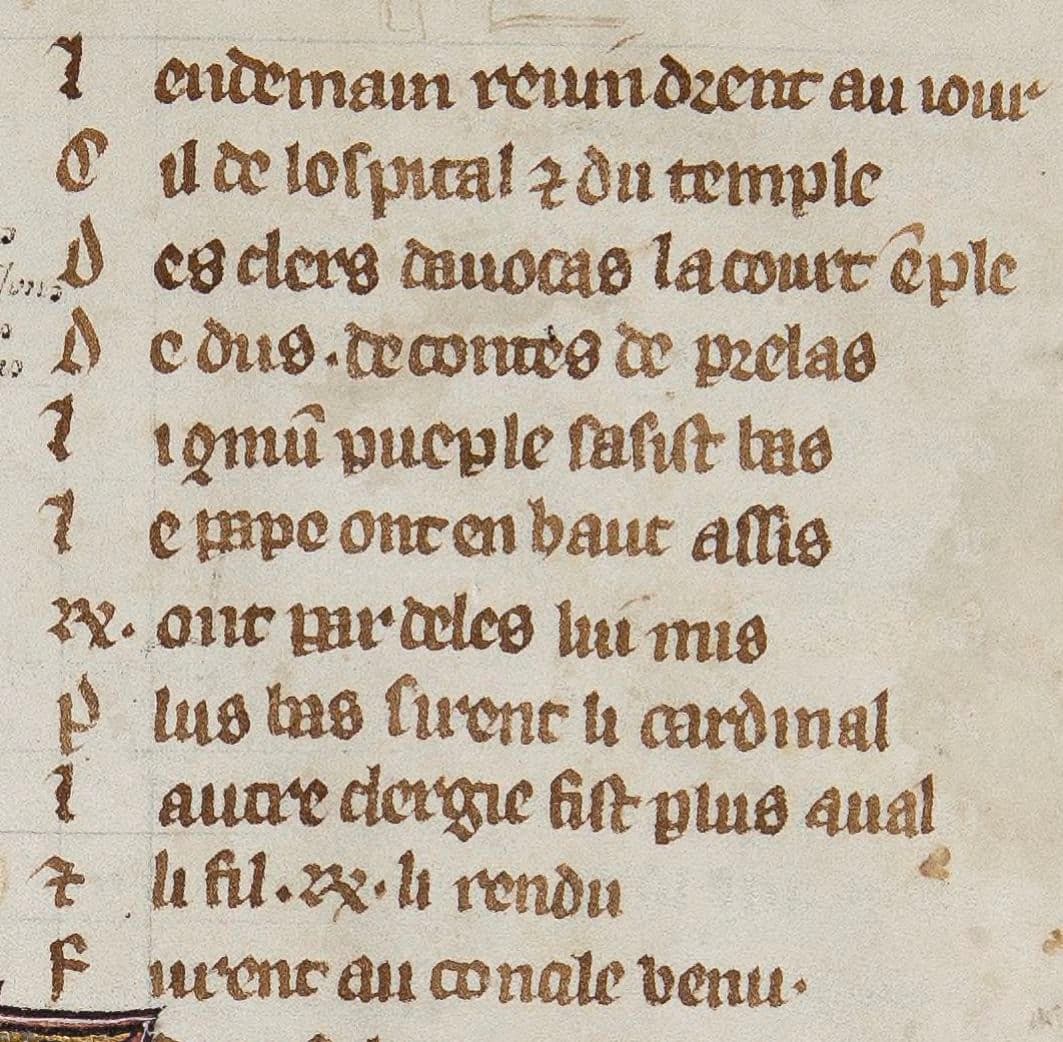 l endemain reuindrent au iour
C il de lospital ⁊ du temple
D es clers dauocas la court ē ple
D e dus . de contes de prelas
l i ꝯmū pueple sasist bas
l e pape ont en haut assis
xx. ont par deles lui mis
p lus bas sirent li cardinal
l autre clergie sist plus aual
⁊ li fil . xx . li rendu
F urent au concile venu .